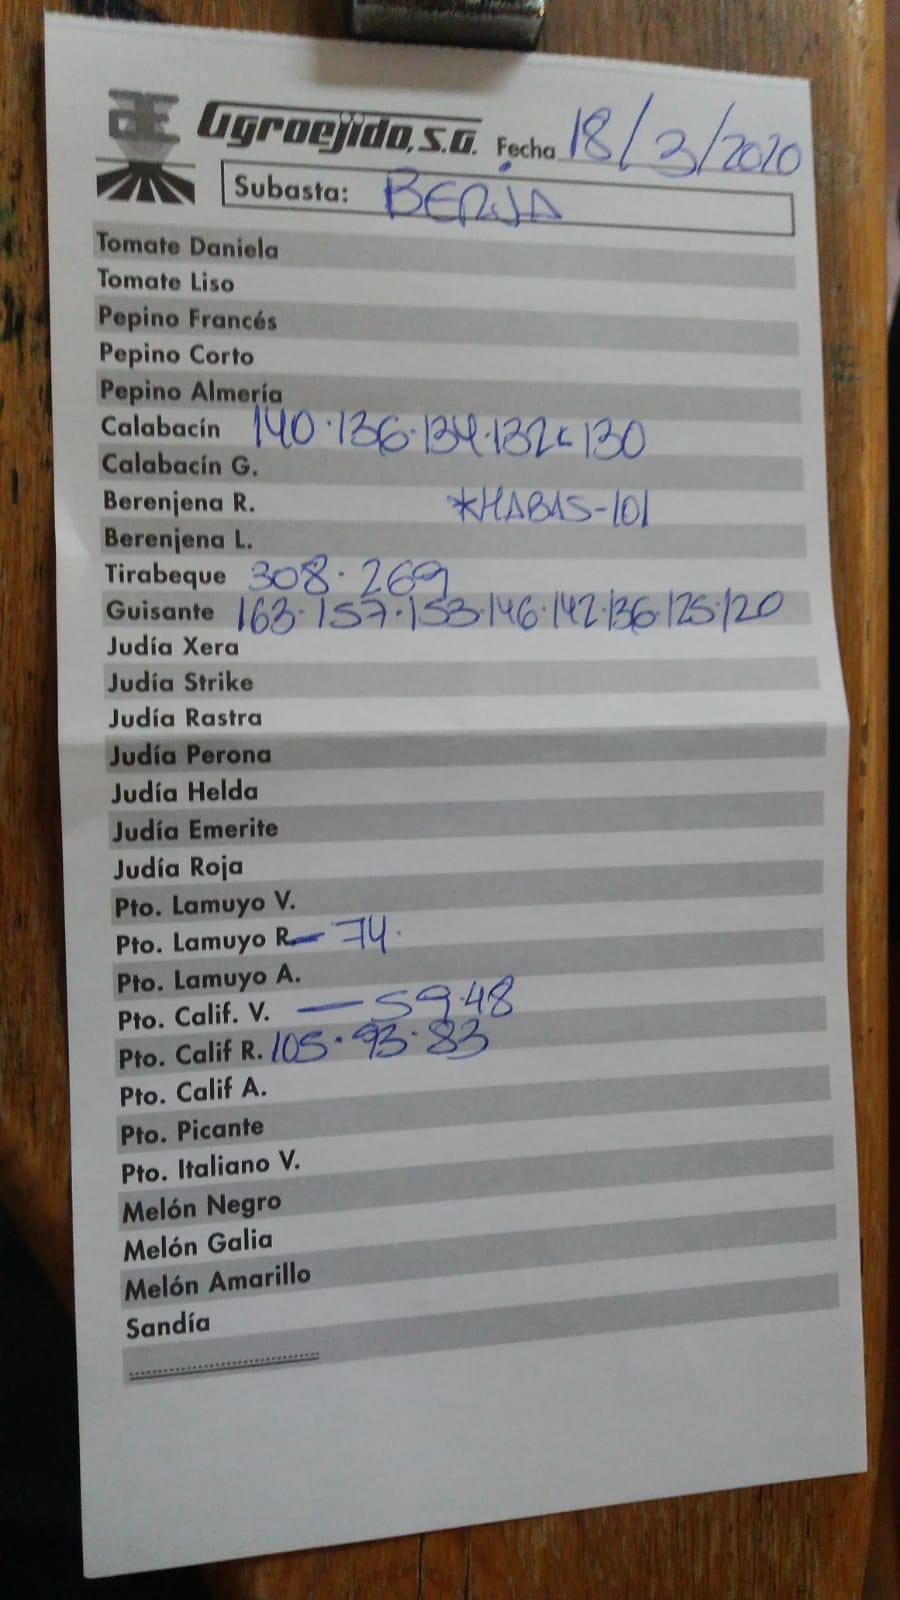 Agroejido, S.A. Fecha 18/3/2020
Subasta: BERJA
Tomate Daniela
Tomate Liso
Pepino Francés
Pepino Corto
Pepino Almería
Calabacín 140·136·134·132·130
Calabacín G.
Berenjena R. *HABAS-101
Berenjena L.
Tirabeque 308·269
Guisante 163·157·153·146·142·136·125·120
Judía Xera
Judía Strike
Judía Rastra
Judía Perona
Judía Helda
Judía Emerite
Judía Roja
Pto. Lamuyo V.
Pto. Lamuyo R. - 74.
Pto. Lamuyo A.
Pto. Calif. V. - 59·48
Pto. Calif R. 105·93·83
Pto. Calif A.
Pto. Picante
Pto. Italiano V.
Melón Negro
Melón Galia
Melón Amarillo
Sandía